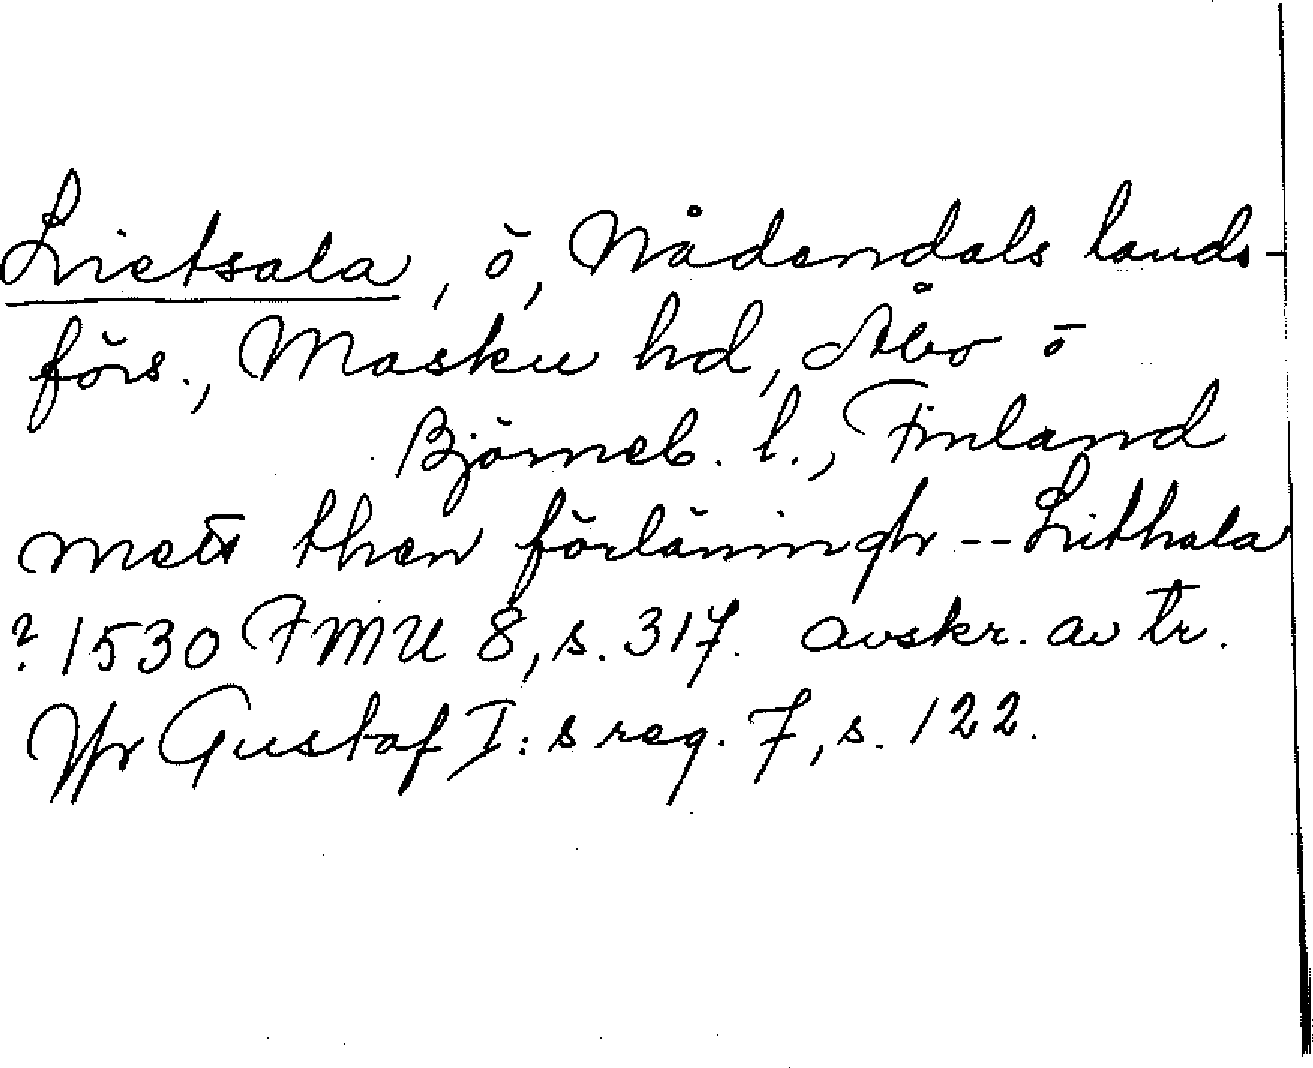 Lietsala, ö, Nådendals lands-
förs., Masku hd, Åbo ö
Björneb. l., Finland
mett then förläningh -- Lithala
? 1530 FMU 8, s. 317. avskr. av tr.
Gustaf I:s reg. 7, s. 122.